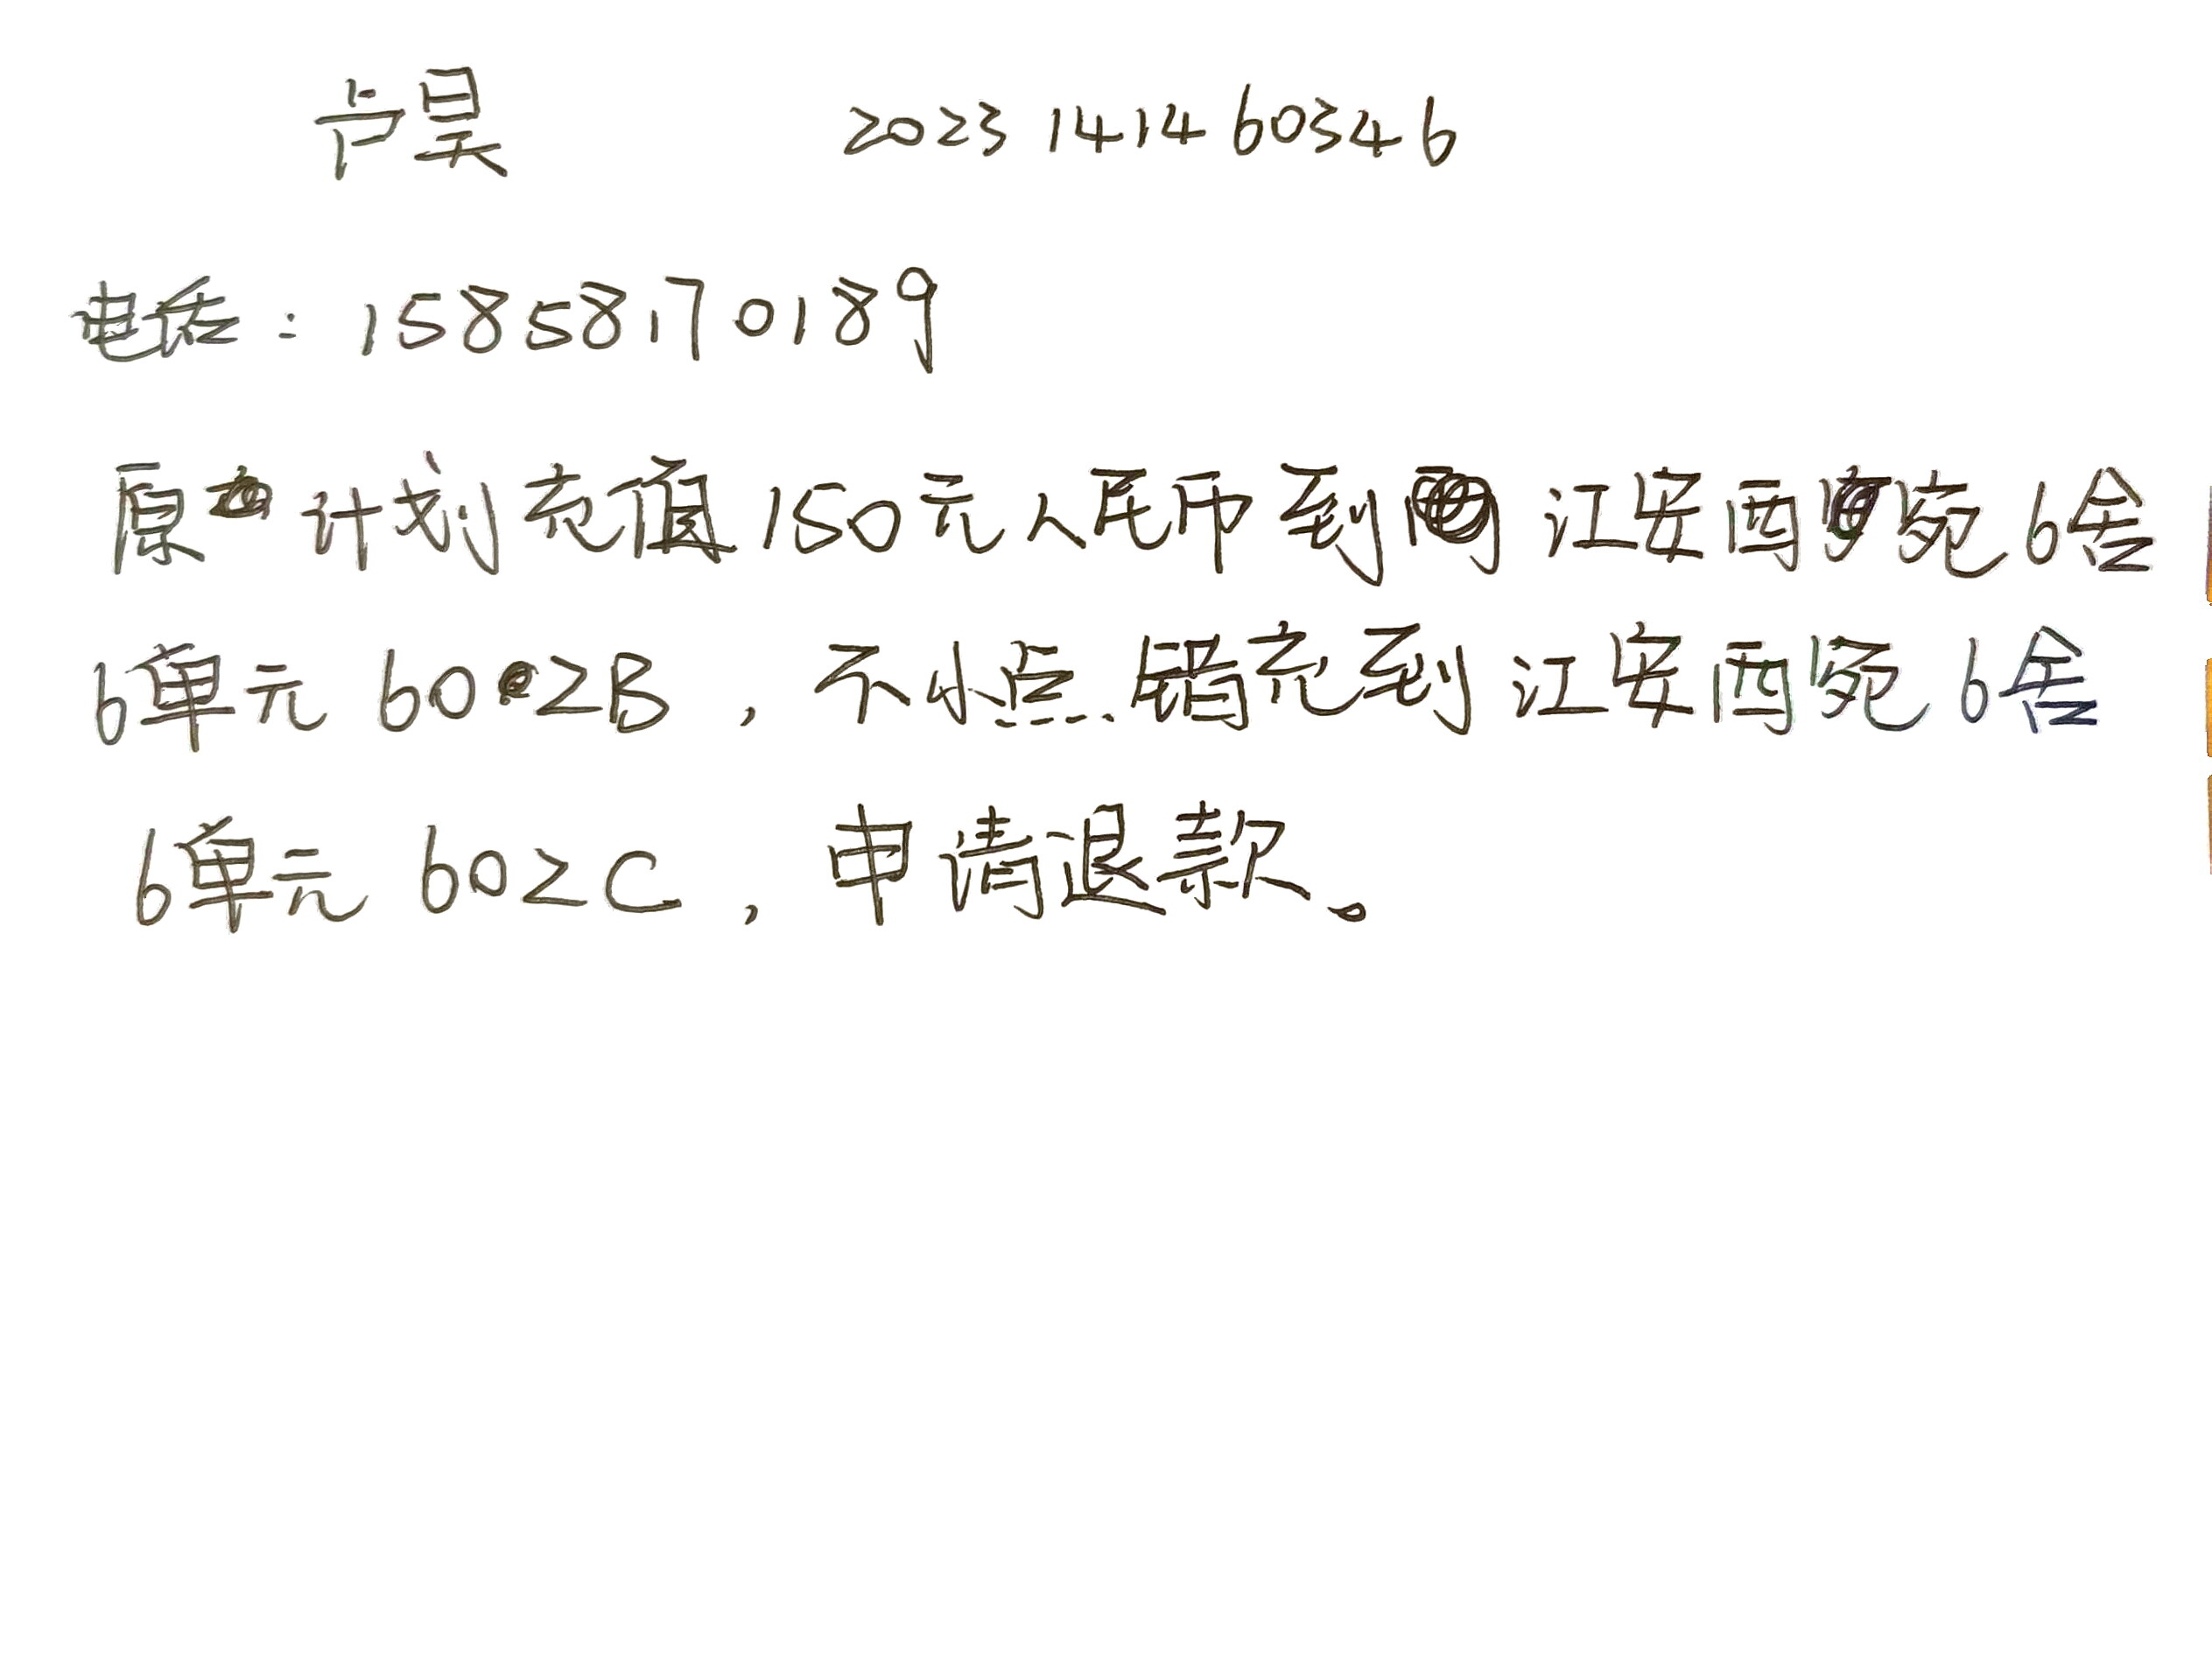 卢昊 2023141460346
电话：15858170189
原计划充值150元人民币到江安西宛6舍
6单元602B，不小点错充到江安西宛6舍
6单元602C，申请退款。